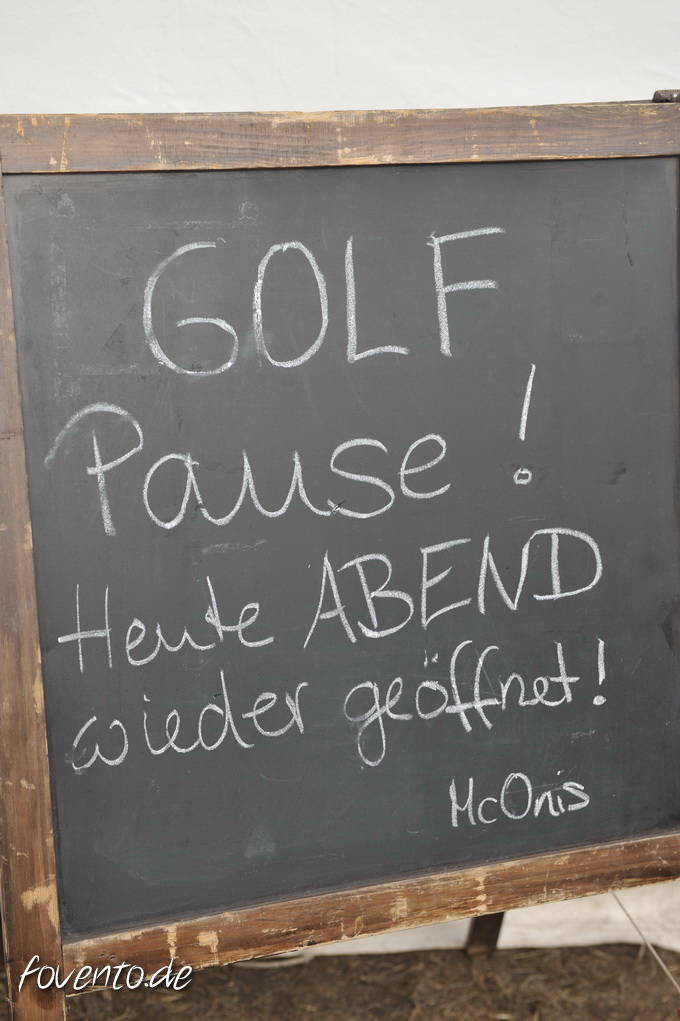 GOLF
Pause!
Heute ABEND
wieder geöffnet!
McOnis
fovento.de